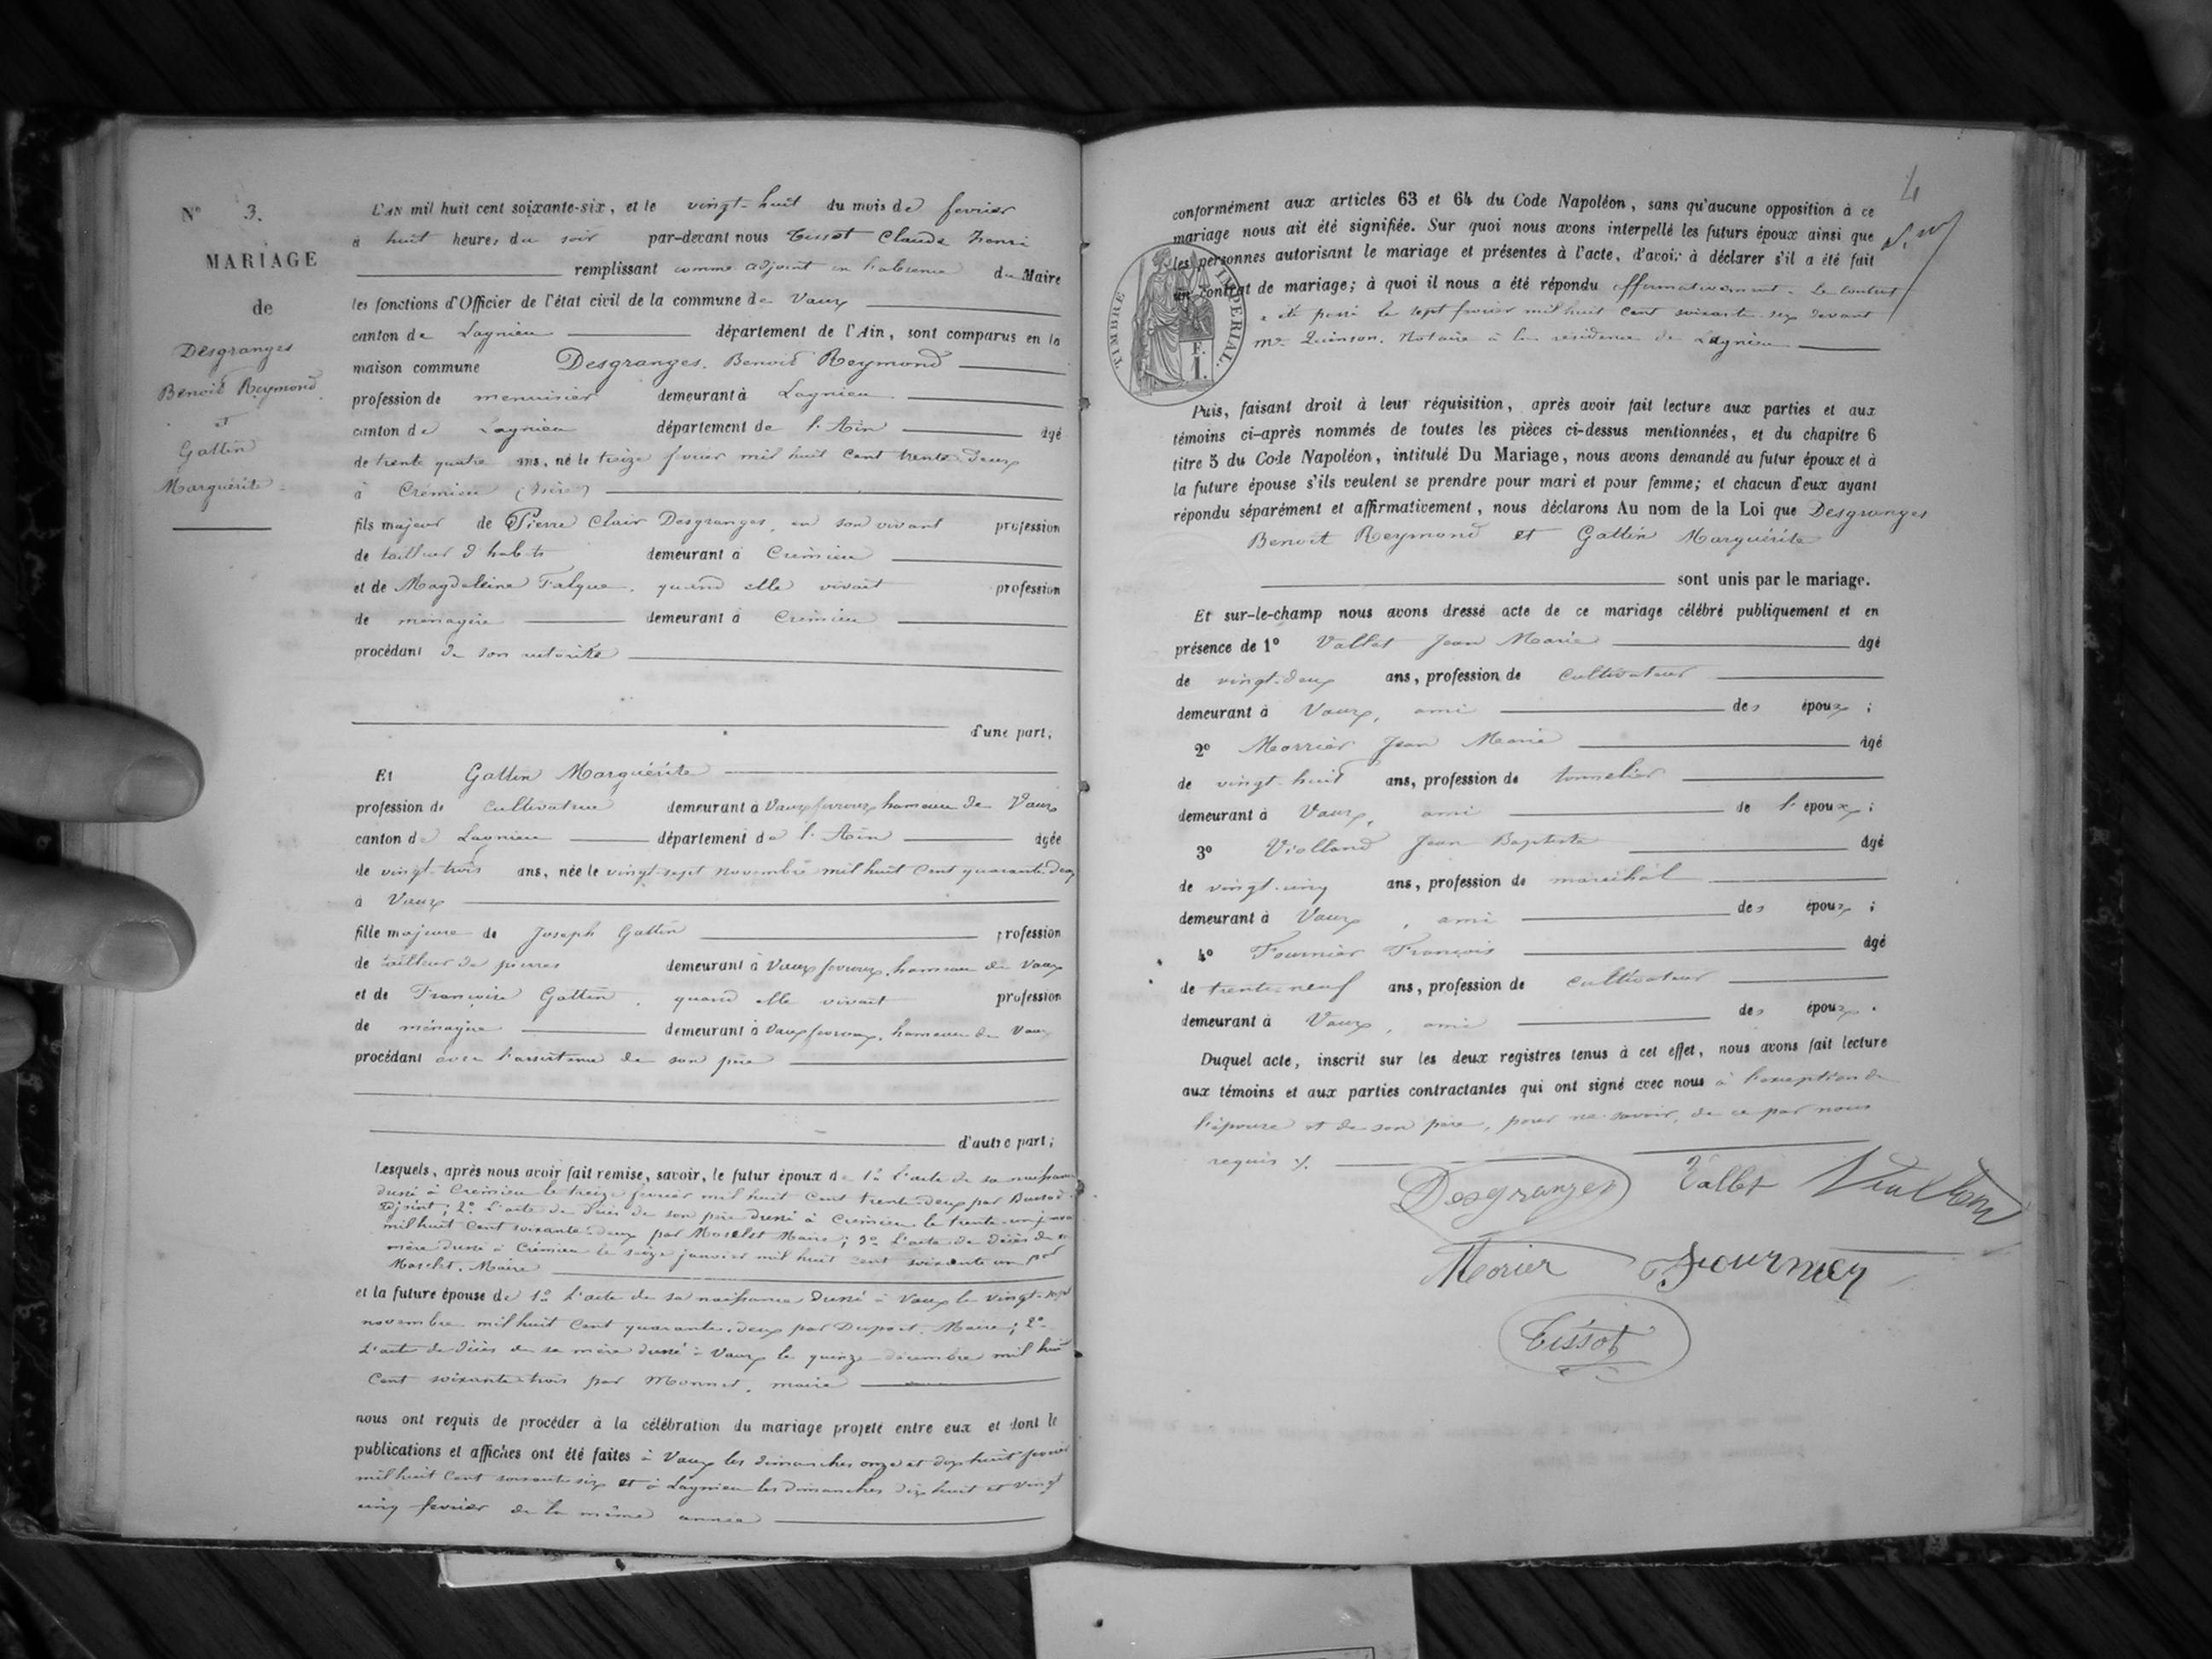 N° 3.
MARIAGE
de
Desgranges
Benoit Reymond
et
Gallin
Marguérite
L'AN mil huit cent soixante-six, et le vingt-huit du mois de fevrier
à huit heures du soir par-devant nous Tissot Claude henri
remplissant comme adjoint en l'absence du Maire
les fonctions d'Officier de l'état civil de la commune de Vaux
canton de Lagnieu département de l'Ain, sont comparus en la
maison commune Desgranges, Benoit Reymond
profession de menuisier demeurant à Lagnieu
canton de Lagnieu département de l'Ain âgé
de trente quatre ans, né le treize fevrier mil huit cent trente-deux
à Crémieu (Isère)
fils majeur de Pierre Clair Desgranges, en son vivant profession
de tailleur d'habits demeurant à Crémieu
et de Magdeleine Falque, quand elle vivait profession
de ménagère demeurant à Crémieu
procédant de son autorité
d'une part,
Et Gallin Marguérite
profession de cultivatrice demeurant à Vaux fevroux hameau de Vaux
canton de Lagnieu département de l'Ain âgée
de vingt-trois ans, née le vingt-sept novembre mil huit cent quarante-deux
à Vaux
fille majeure de Joseph Gallin profession
de tailleur de pierres demeurant à Vaux fevroux, hameau de Vaux
et de Françoise Gallin, quand elle vivait profession
de ménagère demeurant à Vaux fevroux, hameau de Vaux
procédant avec l'assistance de son père
d'autre part;
Lesquels, après nous avoir fait remise, savoir, le futur époux de 1° l'acte de sa naissance
dressé à Crémieu le treize fevrier mil huit cent trente-deux par
adjoint; 2° l'acte de décès de son père dressé à Crémieu le trente-un
mil huit cent soixante-deux par Maire; 3° l'acte de décès de sa
mère dressé à Crémieu le seize janvier mil huit cent soixante un par
Maire
et la future épouse de 1° l'acte de sa naissance dressé à Vaux le vingt-sept
novembre mil huit cent quarante-deux par Dupont, Maire; 2°
l'acte de décès de sa mère dressé à Vaux le quinze décembre mil huit
cent soixante-trois par Monnet, maire
nous ont requis de procéder à la célébration du mariage projeté entre eux et dont les
publications et affiches ont été faites à Vaux les dimanches onze et dix huit fevrier
mil huit cent soixante six et à Lagnieu les dimanches dix huit et vingt
cinq fevrier de la même année
4
conformément aux articles 63 et 64 du Code Napoléon, sans qu'aucune opposition à ce
mariage nous ait été signifiée. Sur quoi nous avons interpellé les futurs époux ainsi que
les personnes autorisant le mariage et présentes à l'acte, d'avoir à déclarer s'il a été fait
un contrat de mariage; à quoi il nous a été répondu affirmativement. Le contrat
a été passé le sept fevrier mil huit cent soixante six devant
me Quinson, Notaire à la résidence de Lagnieu
TIMBRE IMPERIAL.
F.
1.
Puis, faisant droit à leur réquisition, après avoir fait lecture aux parties et aux
témoins ci-après nommés de toutes les pièces ci-dessus mentionnées, et du chapitre 6
titre 5 du Code Napoléon, intitulé Du Mariage, nous avons demandé au futur époux et à
la future épouse s'ils veulent se prendre pour mari et pour femme; et chacun d'eux ayant
répondu séparément et affirmativement, nous déclarons Au nom de la Loi que Desgranges
Benoit Reymond et Gallin Marguérite
sont unis par le mariage.
Et sur-le-champ nous avons dressé acte de ce mariage célébré publiquement et en
présence de 1° Vallet Jean Marie âgé
de vingt-deux ans, profession de cultivateur
demeurant à Vaux, ami des époux;
2° Morrier Jean Marie âgé
de vingt-huit ans, profession de tonnelier
demeurant à Vaux, ami de l'époux;
3° Violland Jean Baptiste âgé
de vingt-cinq ans, profession de maréchal
demeurant à Vaux, ami des époux;
4° Fournier François âgé
de trente-neuf ans, profession de cultivateur
demeurant à Vaux, ami des époux.
Duquel acte, inscrit sur les deux registres tenus à cet effet, nous avons fait lecture
aux témoins et aux parties contractantes qui ont signé avec nous à l'exception de
l'épouse et de son père, pour ne savoir, de ce par nous
requis
Desgranges Vallet
Morier Fournier
Tissot